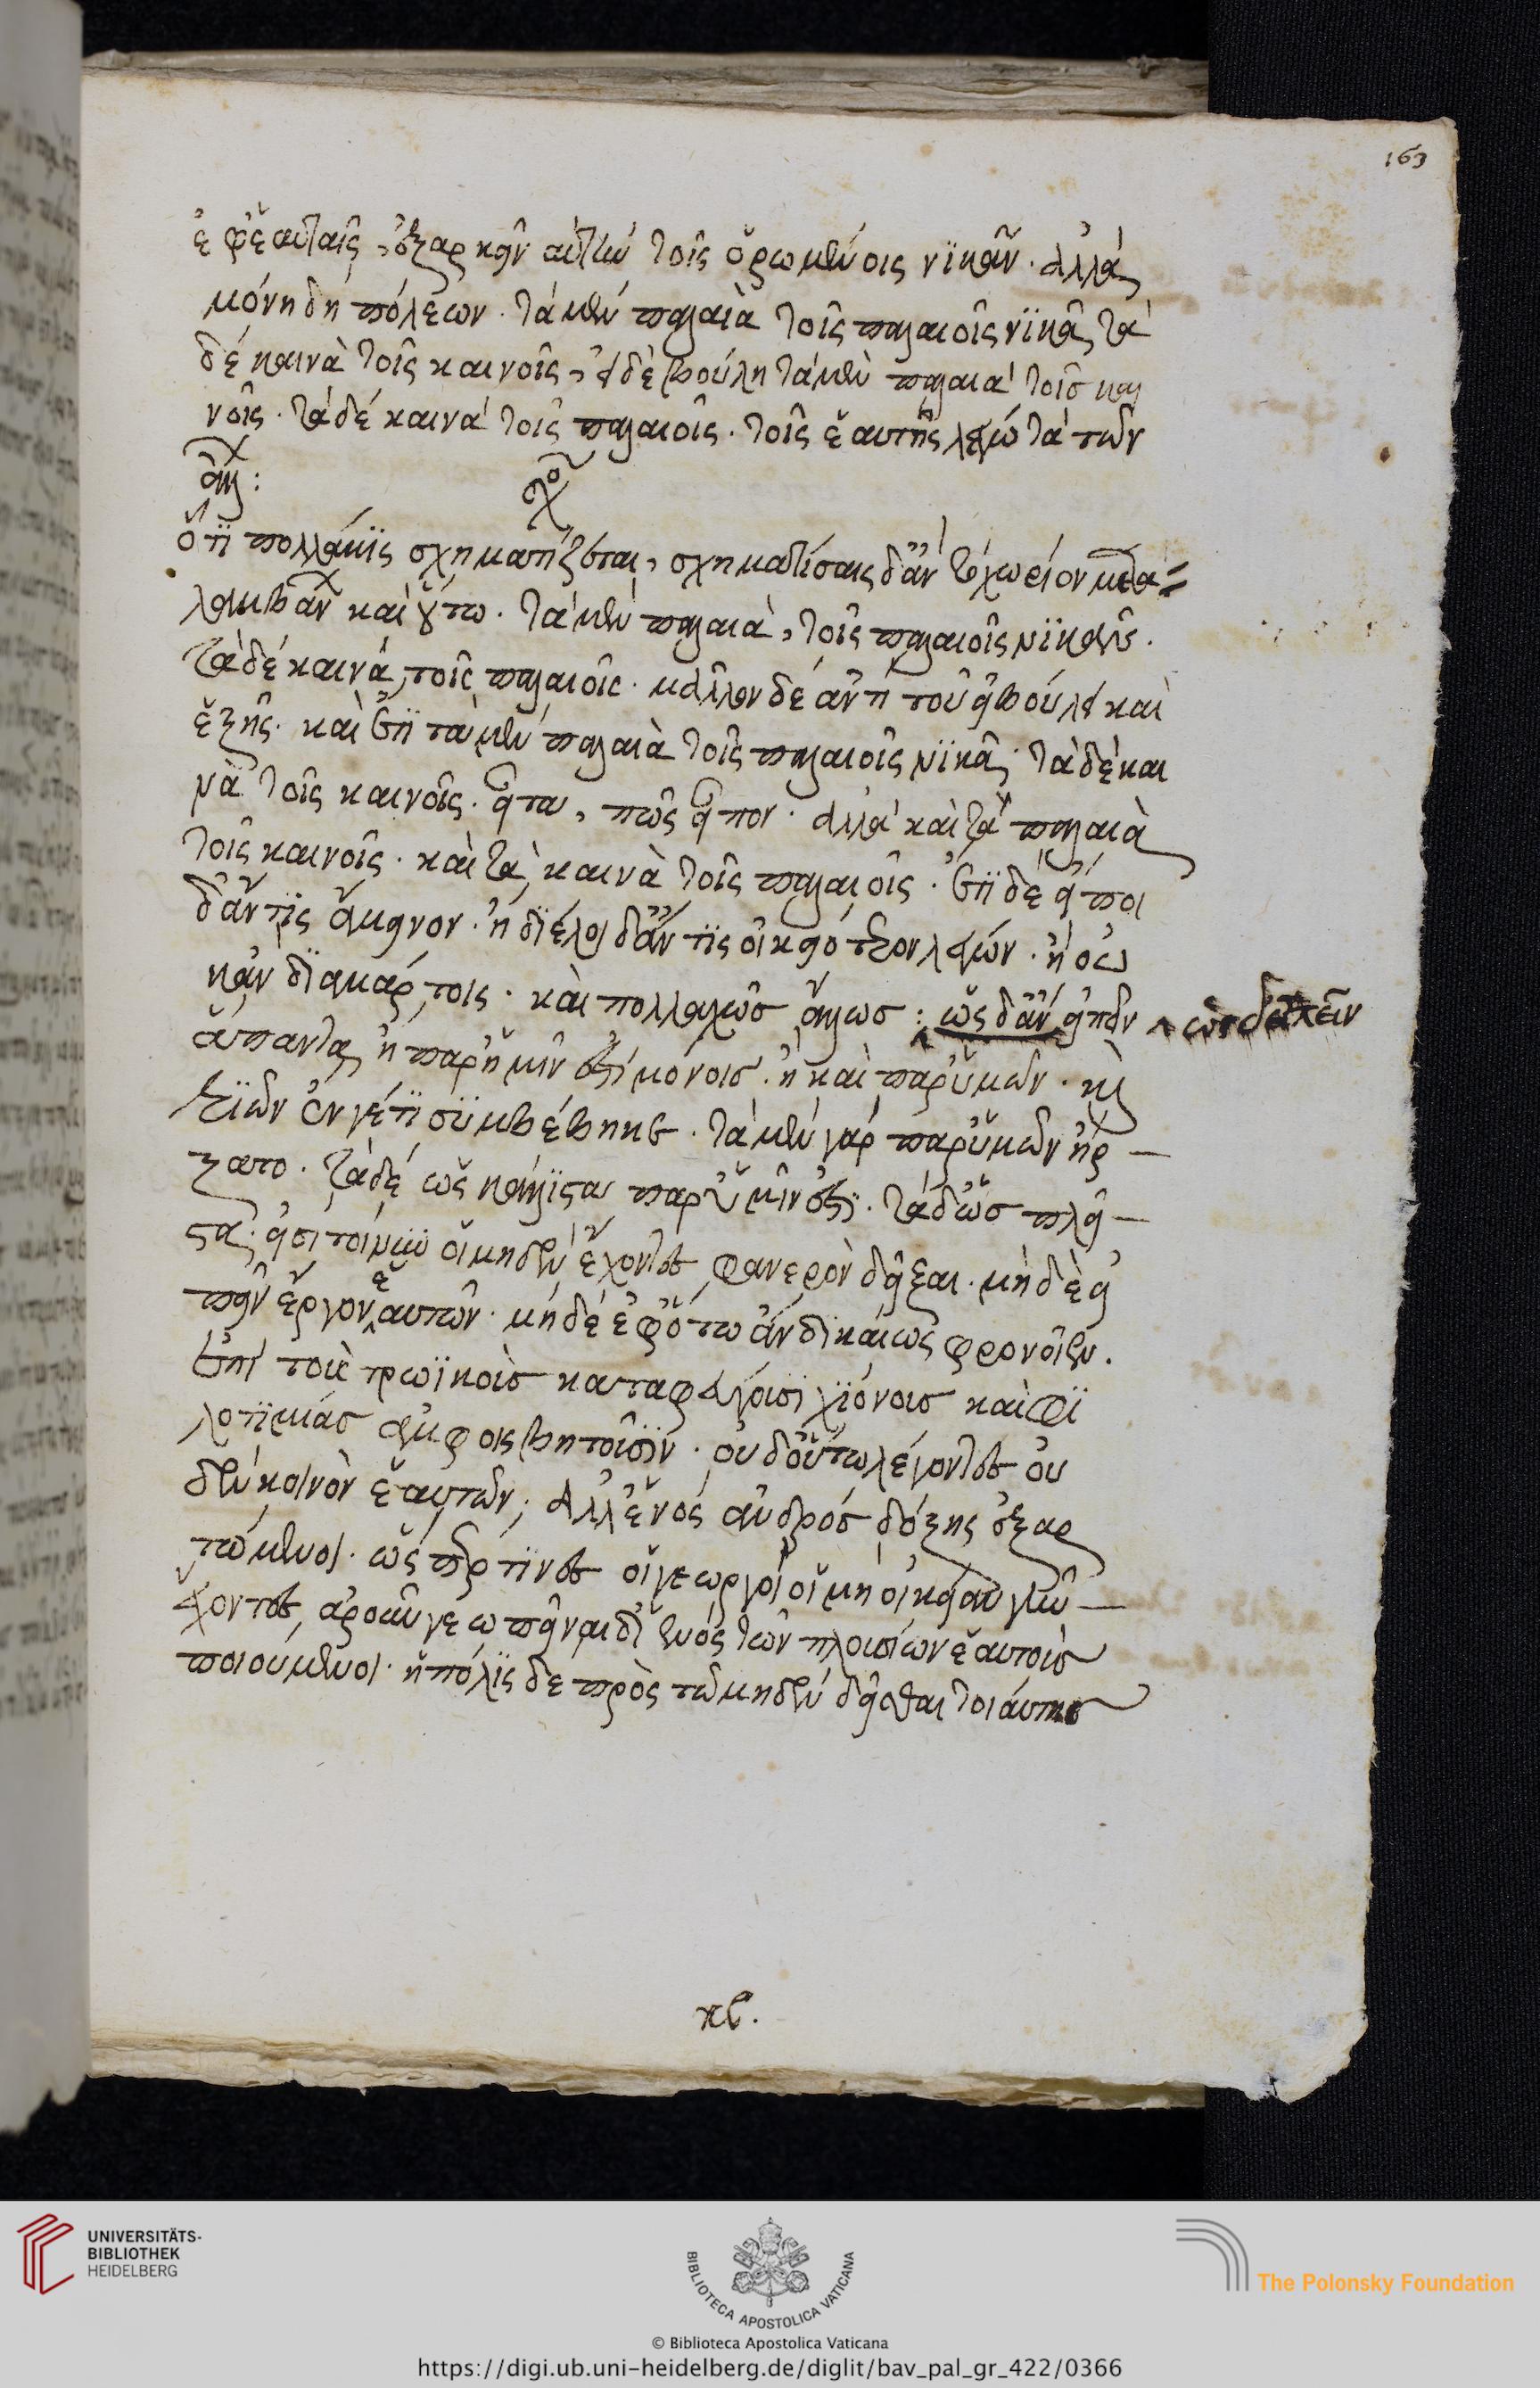 163
ἐφ' ἑαυταῖς, ἐξαρκεῖν αὐτὴν τοῖς ὁρωμένοις νϊκᾶν. ἀλλὰ
μόνη δὴ πόλεων. τὰ μὲν παλαιὰ τοῖς παλαιοῖς νϊκᾷ, τὰ
δὲ καινὰ τοῖς καινοῖς, εἰ δὲ βούλη τὰ μὲν παλαιὰ τοῖσ και
νοῖς. τὰ δὲ καινὰ τοῖς παλαιοῖς. τοῖς ἑαυτῆς λέγω τὰ τῶν
ἄλλ:
σχο
ὅτϊ πολλάκϊς σχηματίζεται, σχηματίσαις δ' ἂν τὸ χωρίον μετα=
λαμβαν καὶ οὕτω. τὰ μὲν παλαιὰ, τοῖς παλαιοῖς νϊκᾶν.
τὰ δὲ καινὰ, τοῖς παλαιοῖς. μᾶλλον δὲ ἀντὶ τοῦ εἰ βούλει καὶ
ἑξῆς. καὶ ἔτϊ τὰ μὲν παλαιὰ τοῖς παλαιοῖς νϊκᾷ, τὰ δὲ και
νὰ τοῖς καινοῖς. εἶτα, πῶς εἶπον. ἀλλὰ καὶ τὰ παλαιὰ
τοῖς καινοῖς. καὶ τὰ καινὰ τοῖς παλαιοῖς. ἔτϊ δὲ εἴποι
δ' ἄν τϊς ἄμεινον. ἢ δϊέλοι δ' ἄν τϊς οἰκειότερον λέγων. ἢ οὐ
κἂν δϊαμάρτοις. καὶ πολλαχῶσ ἄλλωσ: ὡς δ' ἂν εἰπεῖν ὡς δ' εἰπεῖν
ἅπαντα, ἢ παρ' ἡμῖν ἐστὶ μόνοισ. ἢ καὶ παρ' ὑμῶν. καὶ
τϊῶν ἕν γέ τϊ συμβέβηκε. τὰ μὲν γὰρ παρ' ὑμῶν ἤρ-
ξατο. τὰ δὲ ὡς κάλλϊστα παρ' ὑμῖν ἐστϊ. τὰ δ' ὡσ πλεῖ-
στα. εἰσὶ τοίνυν οἳ μηδὲν ἔχοντες φανερὸν δεῖξαι. μὴ δὲ εἰ
πεῖν ἔργον ἑαυτῶν. μηδὲ ἐφ' ὅτω ἂν δϊκαίως φρονοῖεν.
ἐπὶ τοῖς τρωϊκοῖσ καταφεύγουσϊ χϊόνοισ καὶ φϊ
λοτϊμίας ἀμφοισβητοῦσϊν. οὐδ' οὕτω λέγοντες οὐ
δὲν κοινὸν ἑαυτῶν, ἀλλ' ἑνὸς ἀνδρόσ δόξης ἐξαρ
τώμενοι. ὥσπερ τϊνες οἱ γεωργοὶ οἱ μὴ οἰκείαν γῆν-
ἔχοντες, ἀροῦν γε ὡπεῖναι δϊ' ἑνός τῶν πλουσίων ἑαυτοὺσ
ποιούμενοι. ἡ πόλϊς δὲ πρὸς τῶ μηδὲν δεῖσθαι τοιαύτησ
κε.
UNIVERSITÄTS-
BIBLIOTHEK
HEIDELBERG
BIBLIOTECA APOSTOLICA VATICANA
The Polonsky Foundation
© Biblioteca Apostolica Vaticana
https://digi.ub.uni-heidelberg.de/diglit/bav_pal_gr_422/0366